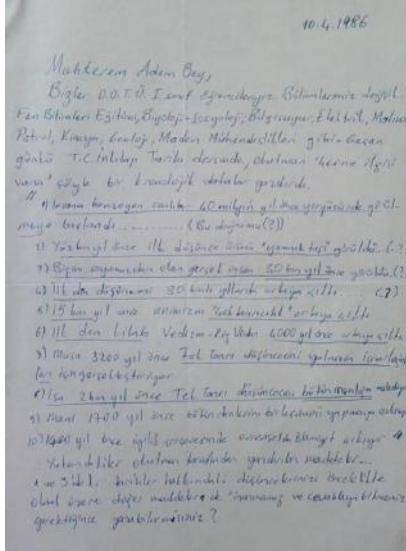 10.4.1986
Muhterem Adem Bey,
Bizler O.D.T.Ü. I. sınıf öğrencileriyiz. Bölümlerimiz değişik
Fen Bilimleri Eğitimi, Biyoloji-sosyoloji, Bilgisayar, Elektrik,
Petrol, Kimya, Jeoloji, Maden Mühendislikleri gibi. Geçen
günkü T.C. İnkılap Tarihi dersinde, okutman "herne ilgisi
varsa" şöyle bir kronolojik datalar yazdırdı.
" 1) İnsana benzeyen canlılar 40 milyon yıl önce yeryüzünde görül-
meye başlandı........... (Bu doğrumu(?))
2) Yüz bin yıl önce ilk düşünce ürünü "yumruk taşı" görüldü. (.?
3) Biçim açısından olan gerçek insan 30 bin yıl önce görüldü.(?
4) İlk din düşüncesi 30 binli yıllarda ortaya çıktı. (?)
5) 15 bin yıl önce animizm ortaya çıktı
6) İlk din kitabı Vedizm-Rig Veda 4000 yıl önce ortaya çıktı
7) Musa 3200 yıl önce Tek Tanrı düşüncesini yalnızca
için gerçekleştiriyor.
8) İsa 2 bin yıl önce Tek Tanrı düşüncesini bütün
9) Mani 1700 yıl önce bütün dinlerin birleşimini yapmaya
10) 1400 yıl önce evrensel İslamiyet çıkıyor "
Yukarıdakiler okutman tarafından yazdırılan maddeler...
1 ve 3'deki tarihler hakkındaki düşüncelerinizi öncelikle
olmak üzere diğer maddelere de
gerektiğince yazabilirmisiniz?